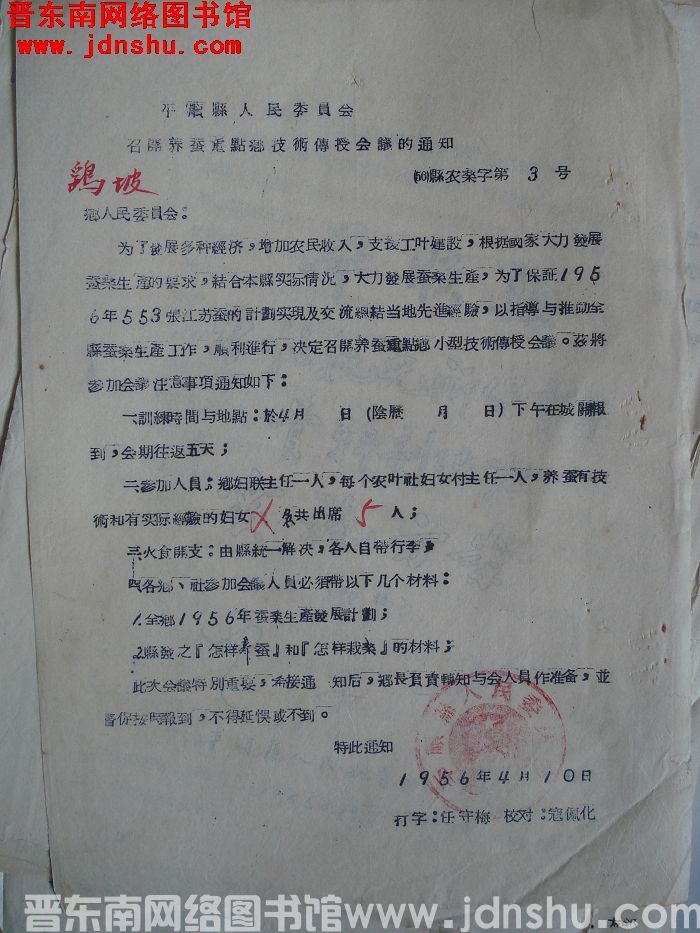 晋东南网络图书馆
www.jdnshu.com
平顺縣人民委員会
召開养蚕重點鄉技術傳授会議的通知
(56)縣农桑字第 3 号
鄉人民委員会：
为了發展多种經济，增加农民收入，支援工叶建設，根据國家大力發展
蚕桑生產的要求，結合本縣实际情况，大力發展蚕桑生產，为了保証195
6年553張江苏蚕的計劃实現及交流總結当地先進經驗，以指導与推動全
縣蚕桑生產工作，順利進行，决定召開养蚕重點鄉小型技術傳授会議。茲將
參加会議注意事項通知如下：
一、訓練時間与地點：於4月　日(陰歷　月　日)下午在城關報
到，会期往返五天；
二、參加人員：鄉妇联主任一人，每个农叶社妇女付主任一人，养蚕有技
術和有实际經驗的妇女 人 共出席 5 人；
三、火食開支：由縣統一解决，各人自帶行李；
四、各鄉、社參加会議人員必須帶以下几个材料：
1.全鄉1956年蚕桑生產發展計劃；
2.縣發之『怎样养蚕』和『怎样栽桑』的材料；
此次会議特別重要，希接通知后，鄉長負責轉知与会人員作准备，並
督促按時報到，不得延悞或不到。
特此通知
1956年4月10日
打字：任守梅 校对：寇佩化
晋东南网络图书馆 www.jdnshu.com